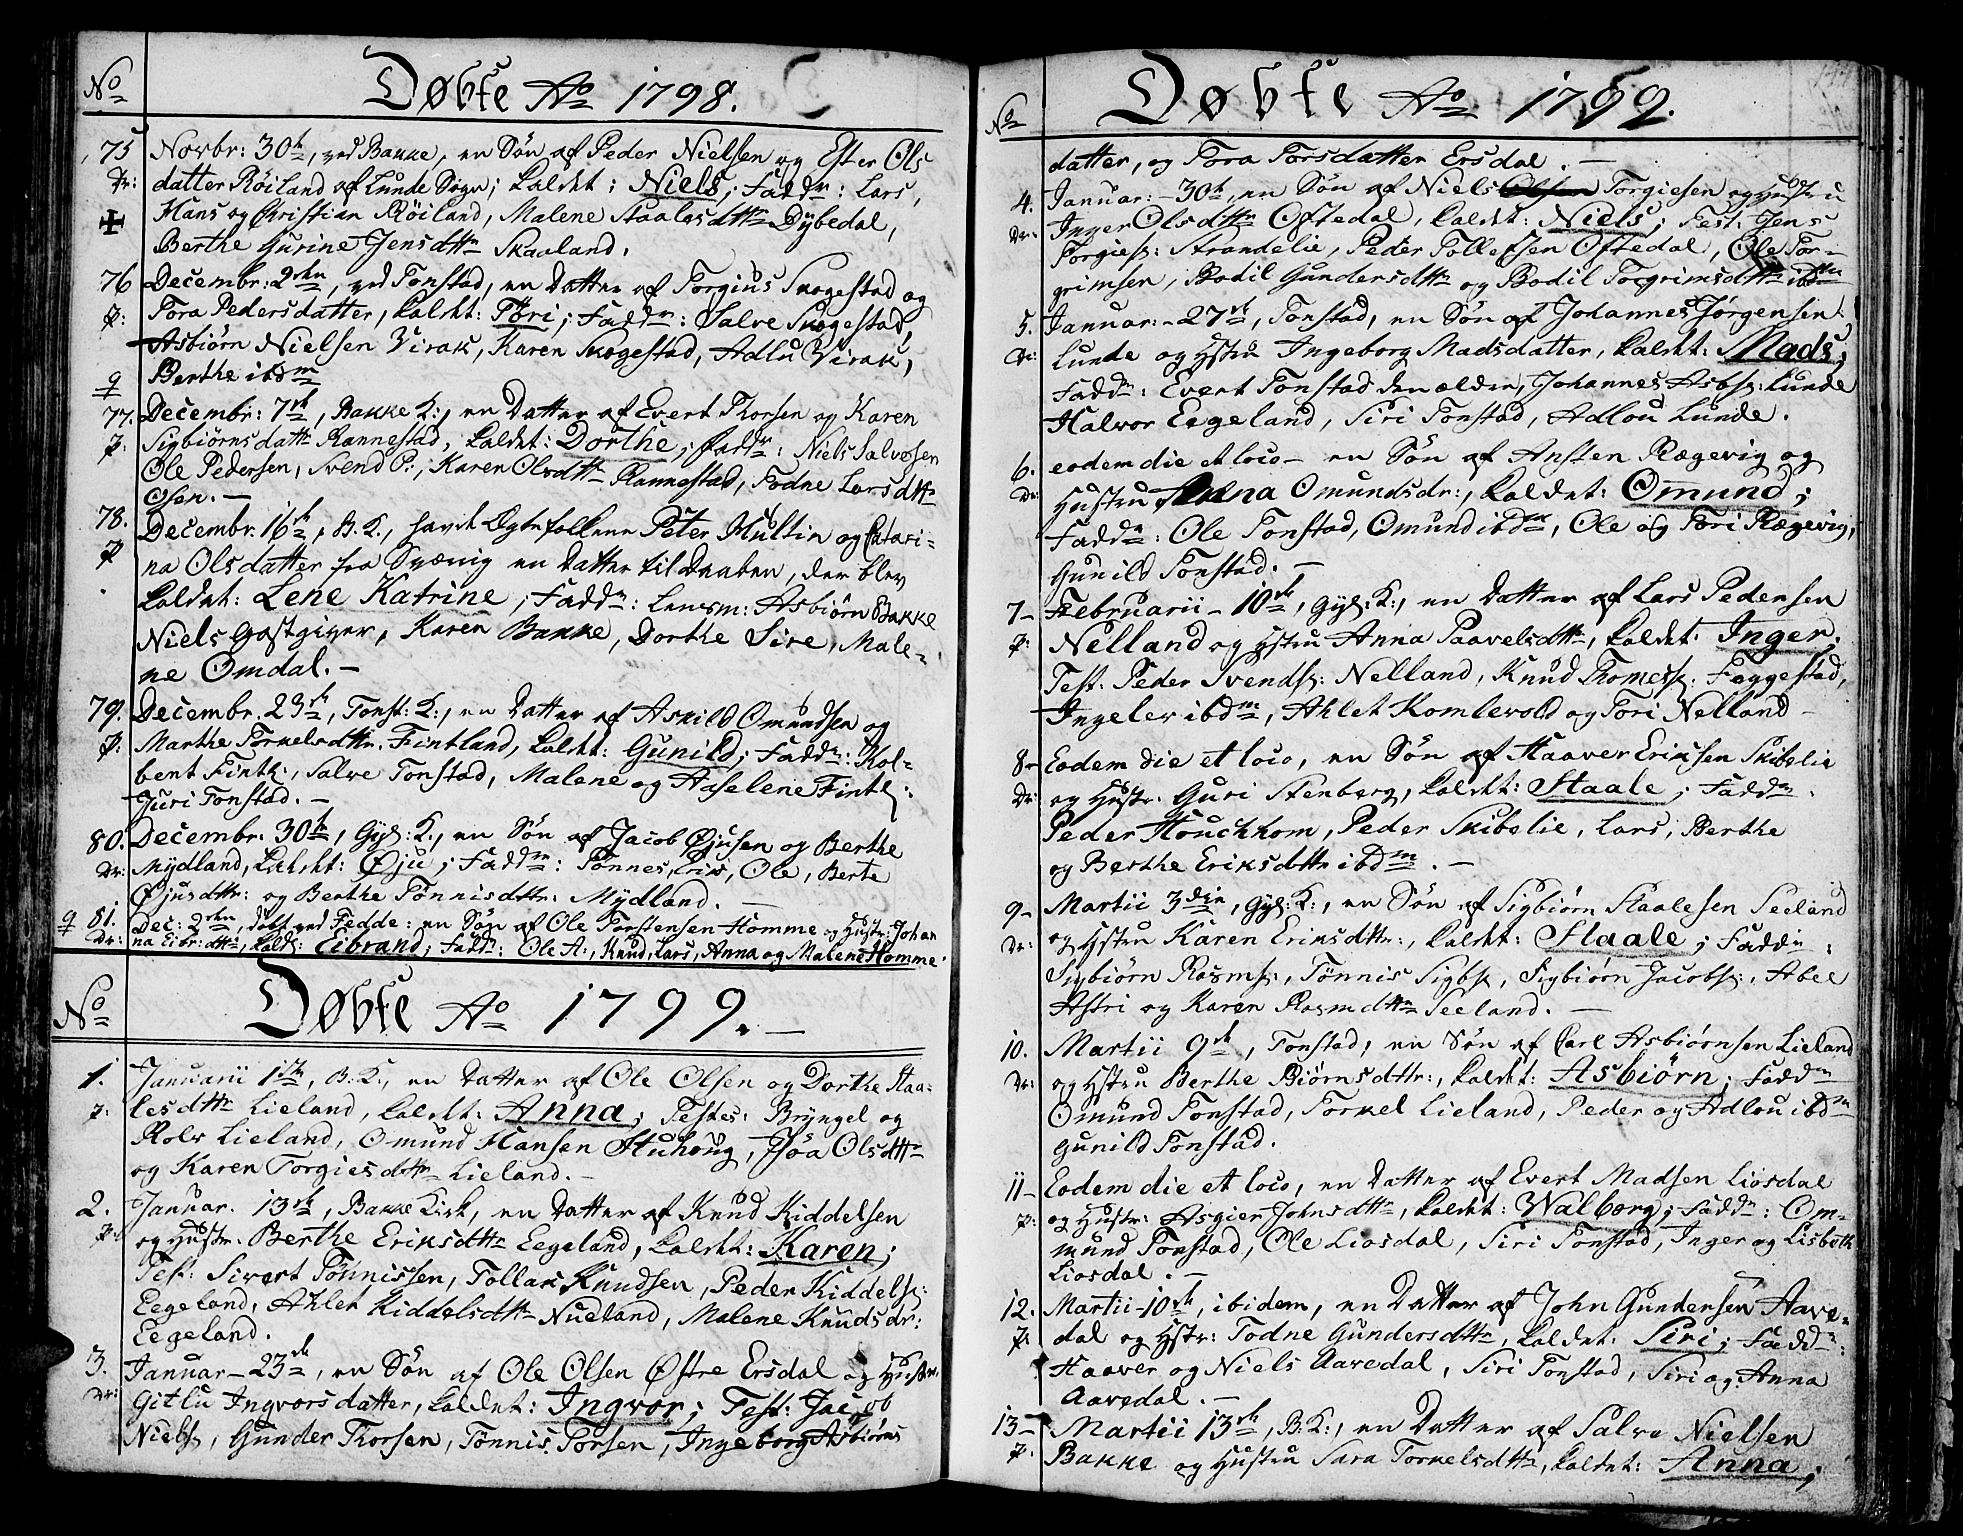 No Døbte Ao 1798.
75 Novbr: 30te, ved Bakke, en Søn af Peder Nielsen og Ester Ols
Dr: datter Røiland af Lunde Sogn; kaldet: Niels; Faddr: Lars,
Hans og Christian Røiland, Malene Staalesdttr Dybedal,
Berthe Gurine Jensdttr Skaaland.
76 Decembr: 2den, ved Tonstad, en Datter af Torgius Skogestad og
p: Tora Pedersdatter, kaldet: Tøri; Faddr: Salve Skogestad,
Asbiørn Nielsen Virak, Karen Skogestad, Adlu Virak,
Berthe ibdm
9
77. Decembr: 7de, Bakke K:, en Datter af Evert Thorsen og Karen
p: Sigbiørnsdattr Rannestad, kaldet: Dorthe; faddr: Niels Salvesen
Ole Pedersen, Svend P:, Karen Olsdttr Rannestad, Todne Larsdttr
Osen. —
78. Decembr. 16de, B. K., havde Ægtefolkene Peter Multin og Catari-
p na Olsdatter fra Svævig en Datter til Daaben, der blev
kaldet: Lene Katrine; Faddr: Lensm: Asbiørn Bakke
Niels Gastgiver, Karen Bakke, Dorthe Sire, Male-
ne Omdal. —
79. Decembr. 23de, Tonst: K:, en Datter af Askild Omundsen og
p: Marthe Torkelsdttr. Fintland, kaldet: Gunild; Faddr: Kol-
bent Fintl:, Salve Tonstad, Malene og Aaselene Fintl:
Juri Tonstad. —
80. Decembr: 30te, Gyl: K:, en Søn af Jacob Øjusen og Berthe
Dr: Mydland, kaldet: Øju; Faddr: Tønnes, Eric, Ole, Berte
Øjusdttr: og Berthe Tönnisdttr: Mydland. —
9 81. Dec: 2den, døbt ved Fedde: en Søn af Ole Torstensen Homme og Hustr: Johan
Dr: na Eibr: dttr, kaldt: Eibrand; Faddr: Ole A:, Knud, Lars, Anna og Malene Homme.
No Døbte Ao 1799. —
1. Januarii 1ste, B. K., en Datter af Ole Olsen og Dorthe Staa-
p: lesdttr Lieland, kaldet: Anna; Testes: Bryngel og
Rolv Lieland, Omund Hansen Stuhoug, Jöa Olsdttr
og Karen Torgiesdttr Lieland. —
2. Januar. 13de, Bakke Kirk, en Datter af Knud Kiddelsen
p: og Hustr: Berthe Eriksdttr Eegeland, kaldet: Karen;
Test: Sivert Tönnissen, Tollak Knudsen, Peder Kiddels:
Eegeland, Ahlet Kiddelsdttr Nueland, Malene Knudsdr:
Eegeland.
3. Januar — 23de, en Søn af Ole Olsen Østre Ersdal og Hustr.
Dr: Gitlu Ingvorsdatter, kaldet: Ingvor; Test: Jacob
Niels:, Gunder Thorsen, Tönnis Torsen, Ingeborg Asbiörns
No Døbte Ao 1799.
datter, og Tora Torsdatter Ersdal. —
4. Januar: — 30te, en Søn af Niels Olsen Torgiesen og Hustru
Dr: Inger Olsdttr Oftedal, kaldet: Niels; Test: Jens
Torgies: Strandelie, Peder Tollefsen Oftedal, Ole Tor-
grimsen, Bodil Gundersdttr og Bodil Torgrimsdttr ibdm
5. Januar: — 27de, Tonstad, en Søn af Johannes Jørgensen
Dr: Lunde og Hstru Ingeborg Madsdatter, kaldet: Mads;
Faddr: Evert Tonstad den ældre, Johannes Asbs: Lunde
Halvor Eegeland, Siri Tonstad, Adlou Lunde.
6. eodem die et loco — en Søn af Ansten Rægevig og
Dr: Hustru Anna Omundsdr:, kaldet: Omund;
Faddr: Ole Tonstad, Omund ibdm, Ole og Tøri Rægevig,
Gunild Tonstad. —
7 — Februarii — 10de, Gyl: K:, en Datter af Lars Pedersen
p: Nelland og Hstru Anna Paavelsdttr, kaldet: Inger.
Test: Peder Svends: Nelland, Knud Thomess: Faggestad,
Ingeler ibdm, Ahlet Komlevold og Tori Nelland —
8 — Eodem die et loco, en Søn af Haaver Eriksen Skibelie
Dr: og Hustr: Guri Stenberg, kaldet: Staale; Faddr.
Peder Houchhom, Peder Skibelie, Lars, Berthe
og Berthe Eriksdttr ibdm. —
9 — Martii 3die, Gyl: K:, en Søn af Sigbiørn Staalesen Seeland
Dr: og Hstru Karen Eriksdttr:, kaldet: Staale; Faddr:
Sigbiörn Rasms:, Tönnis Sigbs:, Sigbiörn Jacobs:, Abel
Astri og Karen Rasmdttr Seeland. —
10. Martii 9de, Tonstad, en Søn af Carl Asbiørnsen Lieland
Dr: og Hstru Berthe Biörnsdttr:, kaldet: Asbiørn; Faddr
Omund Tonstad, Torkel Lieland, Peder og Adlou ibdm
Gunild Tonstad.
11 — Eodem die et loco, en Datter af Evert Madsen Liosdal
p: og Hustr: Asgier Johnsdttr, kaldet: Walborg; Faddr: Om-
mund Tonstad, Ole Liosdal, Siri Tonstad, Inger og Lisbeth
Liosdal. —
12. Martii — 10de, ibidem, en Datter af John Gundersen Aave-
p: dal og Hstr: Todne Gundersdttr, kaldet: Siri; Faddr:
Haaver og Niels Aavedal, Siri Tonstad, Siri og Anna
Aavedal. —
13 — Martii 13de, B. K:, en Datter af Salve Nielsen
p. Bakke og Hustru Sara Torkelsdttr, kaldet: Anna;